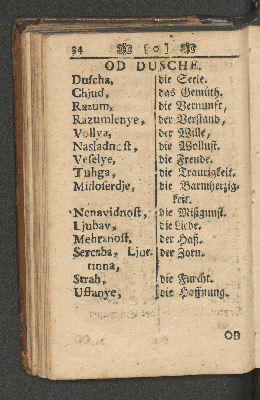 34 [ o ]
OD DUSCHE.
Duscha, die Seele.
Chjud, das Gemüth.
Razum, die Vernunft,
Razumlenye, der Verstand,
Vollya, der Wille,
Nasladnost, die Wollust.
Veselye, die Freude.
Tuhga, die Traurigkeit.
Miloserdje, die Barmherzig-
keit.
Nenavidnost, die Mißgunst.
Ljubav, die Liebe.
Mehrznost, der Haß.
Sercsba, Ljut- der Zorn.
tinna,
Strah, die Furcht.
Uffanye, die Hoffnung.
OB